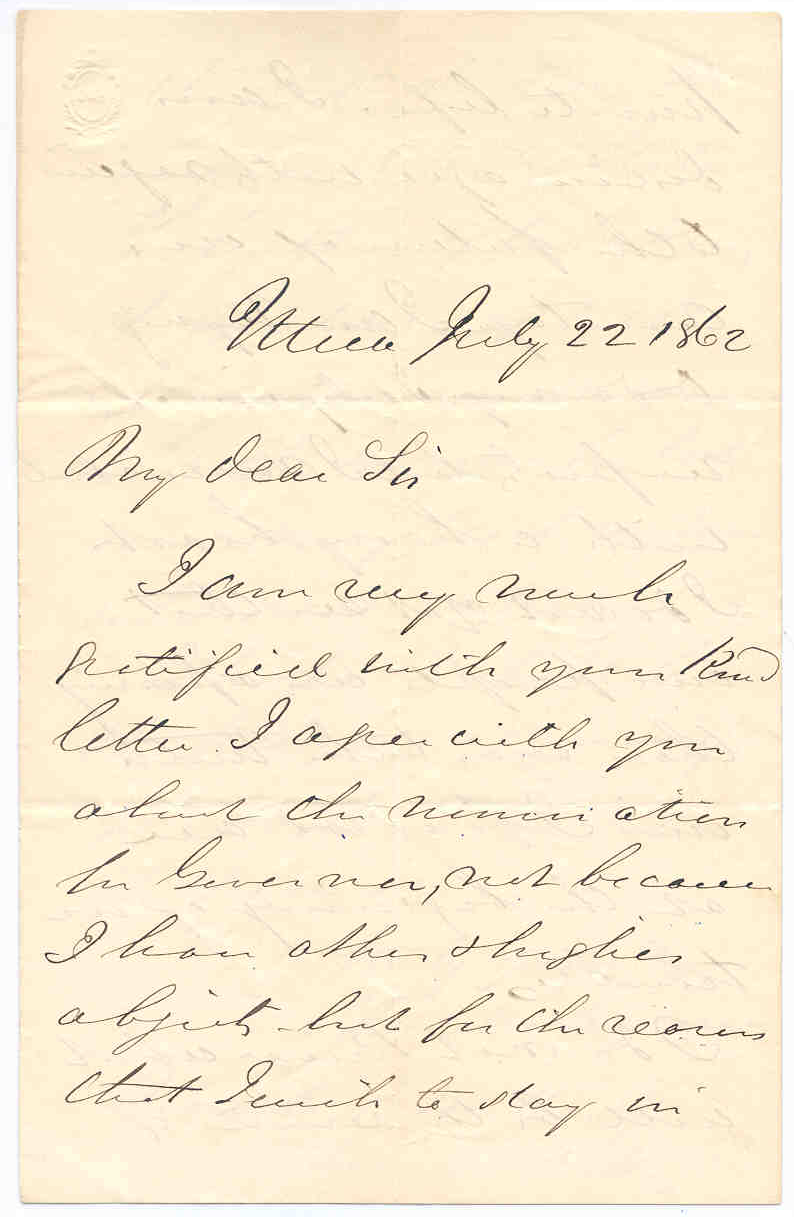 Utica July 22 1862
My dear Sir
I am very much
gratified with your kind
letter. I agree with you
about the nomination
for Governor, not because
I have other & higher
objects but for the reasons
that I wish to stay in